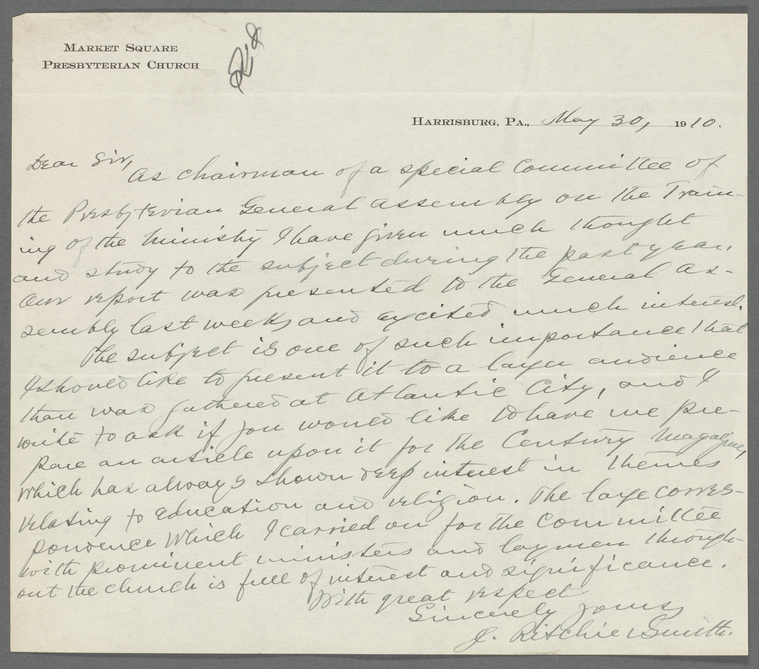 Market Square
Presbyterian Church
Harrisburg, Pa., May 30, 1910.
Dear Sir,
As chairman of a special Committee of
the Presbyterian General Assembly on the Train-
ing of the Ministry I have given much thought
and study to the subject during the past year.
Our report was presented to the General As-
sembly last week, and excited much interest.
The subject is one of such importance that
I should like to present it to a larger audience
than was gathered at Atlantic City, and I
write to ask if you would like to have me pre-
pare an article upon it for the Century Magazine,
which has always shown deep interest in themes
relating to education and religion. The large corres-
pondence which I carried on for the Committee
with prominent ministers and laymen through-
out the church is full of interest and significance.
With great respect
Sincerely yours,
J. Ritchie Smith.